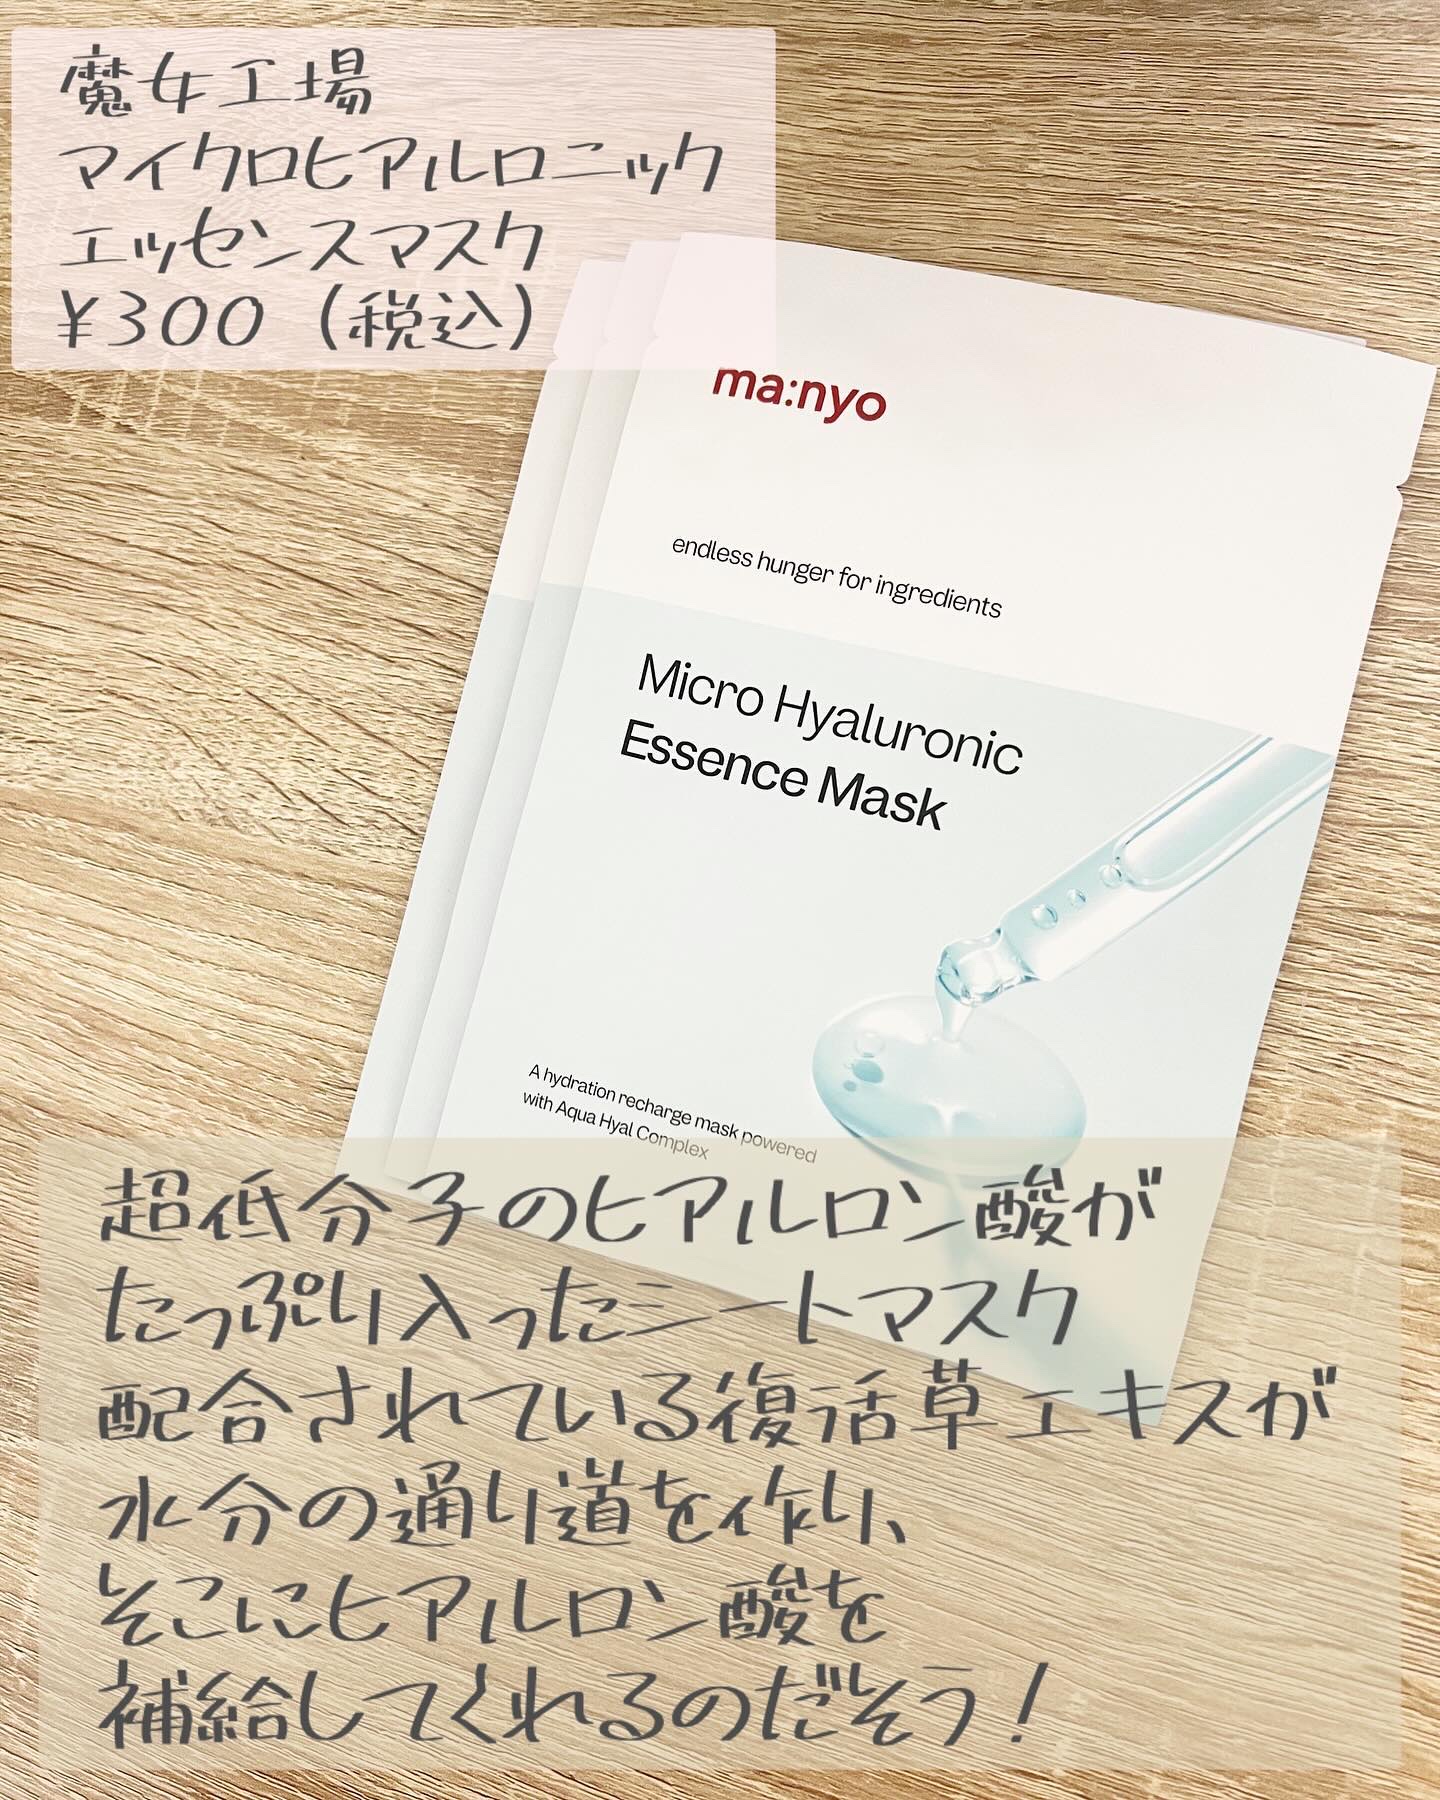 魔女工場
マイクロヒアルロニック
エッセンスマスク
¥300（税込）
ma:nyo
endless hunger for ingredients
Micro Hyaluronic
Essence Mask
A hydration recharge mask powered
with Aqua Hyal Complex
超低分子のヒアルロン酸が
たっぷり入ったシートマスク
配合されている復活草エキスが
水分の通り道を作り、
そこにヒアルロン酸を
補給してくれるのだそう！